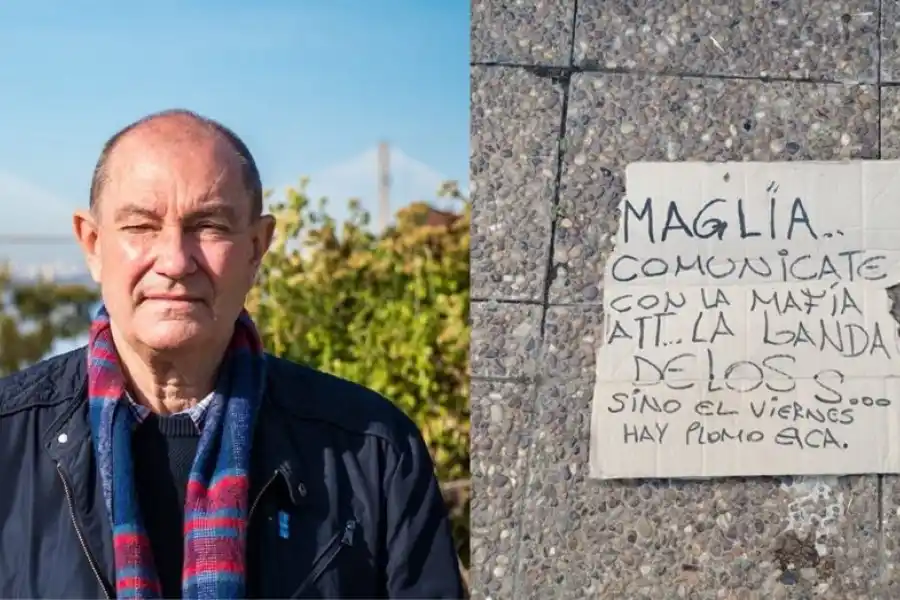 MAGLÏA..
COMUNiCATE
CON LA MAFÍA
ATT... LA BANDA
DE LOS S...
SiNO EL ViERNES
HAY PLOMO